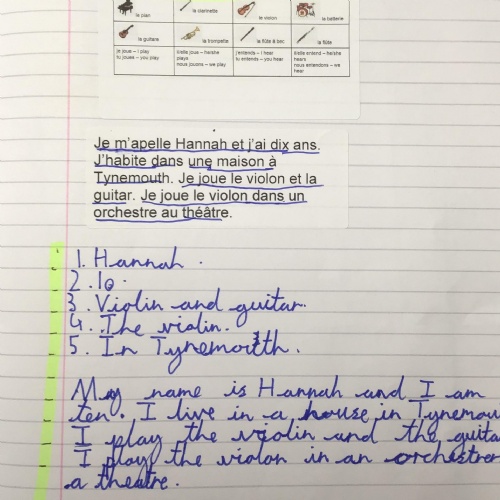 le piano la clarinette le violon la batterie
la guitare la trompette la flûte à bec la flûte
je joue – I play il/elle joue – he/she j'entends – I hear il/elle entend – he/she
tu joues – you play plays tu entends – you hear hears
nous jouons – we play nous entendons – we
hear
Je m'apelle Hannah et j'ai dix ans.
J'habite dans une maison à
Tynemouth. Je joue le violon et la
guitar. Je joue le violon dans un
orchestre au théâtre.
1. Hannah.
2. 10.
3. Violin and guitar.
4. The violin.
5. In Tynemouth.
My name is Hannah and I am
ten. I live in a house in Tynemou
I play the violin and the guita
I play the violon in an orchestren
a theatre.